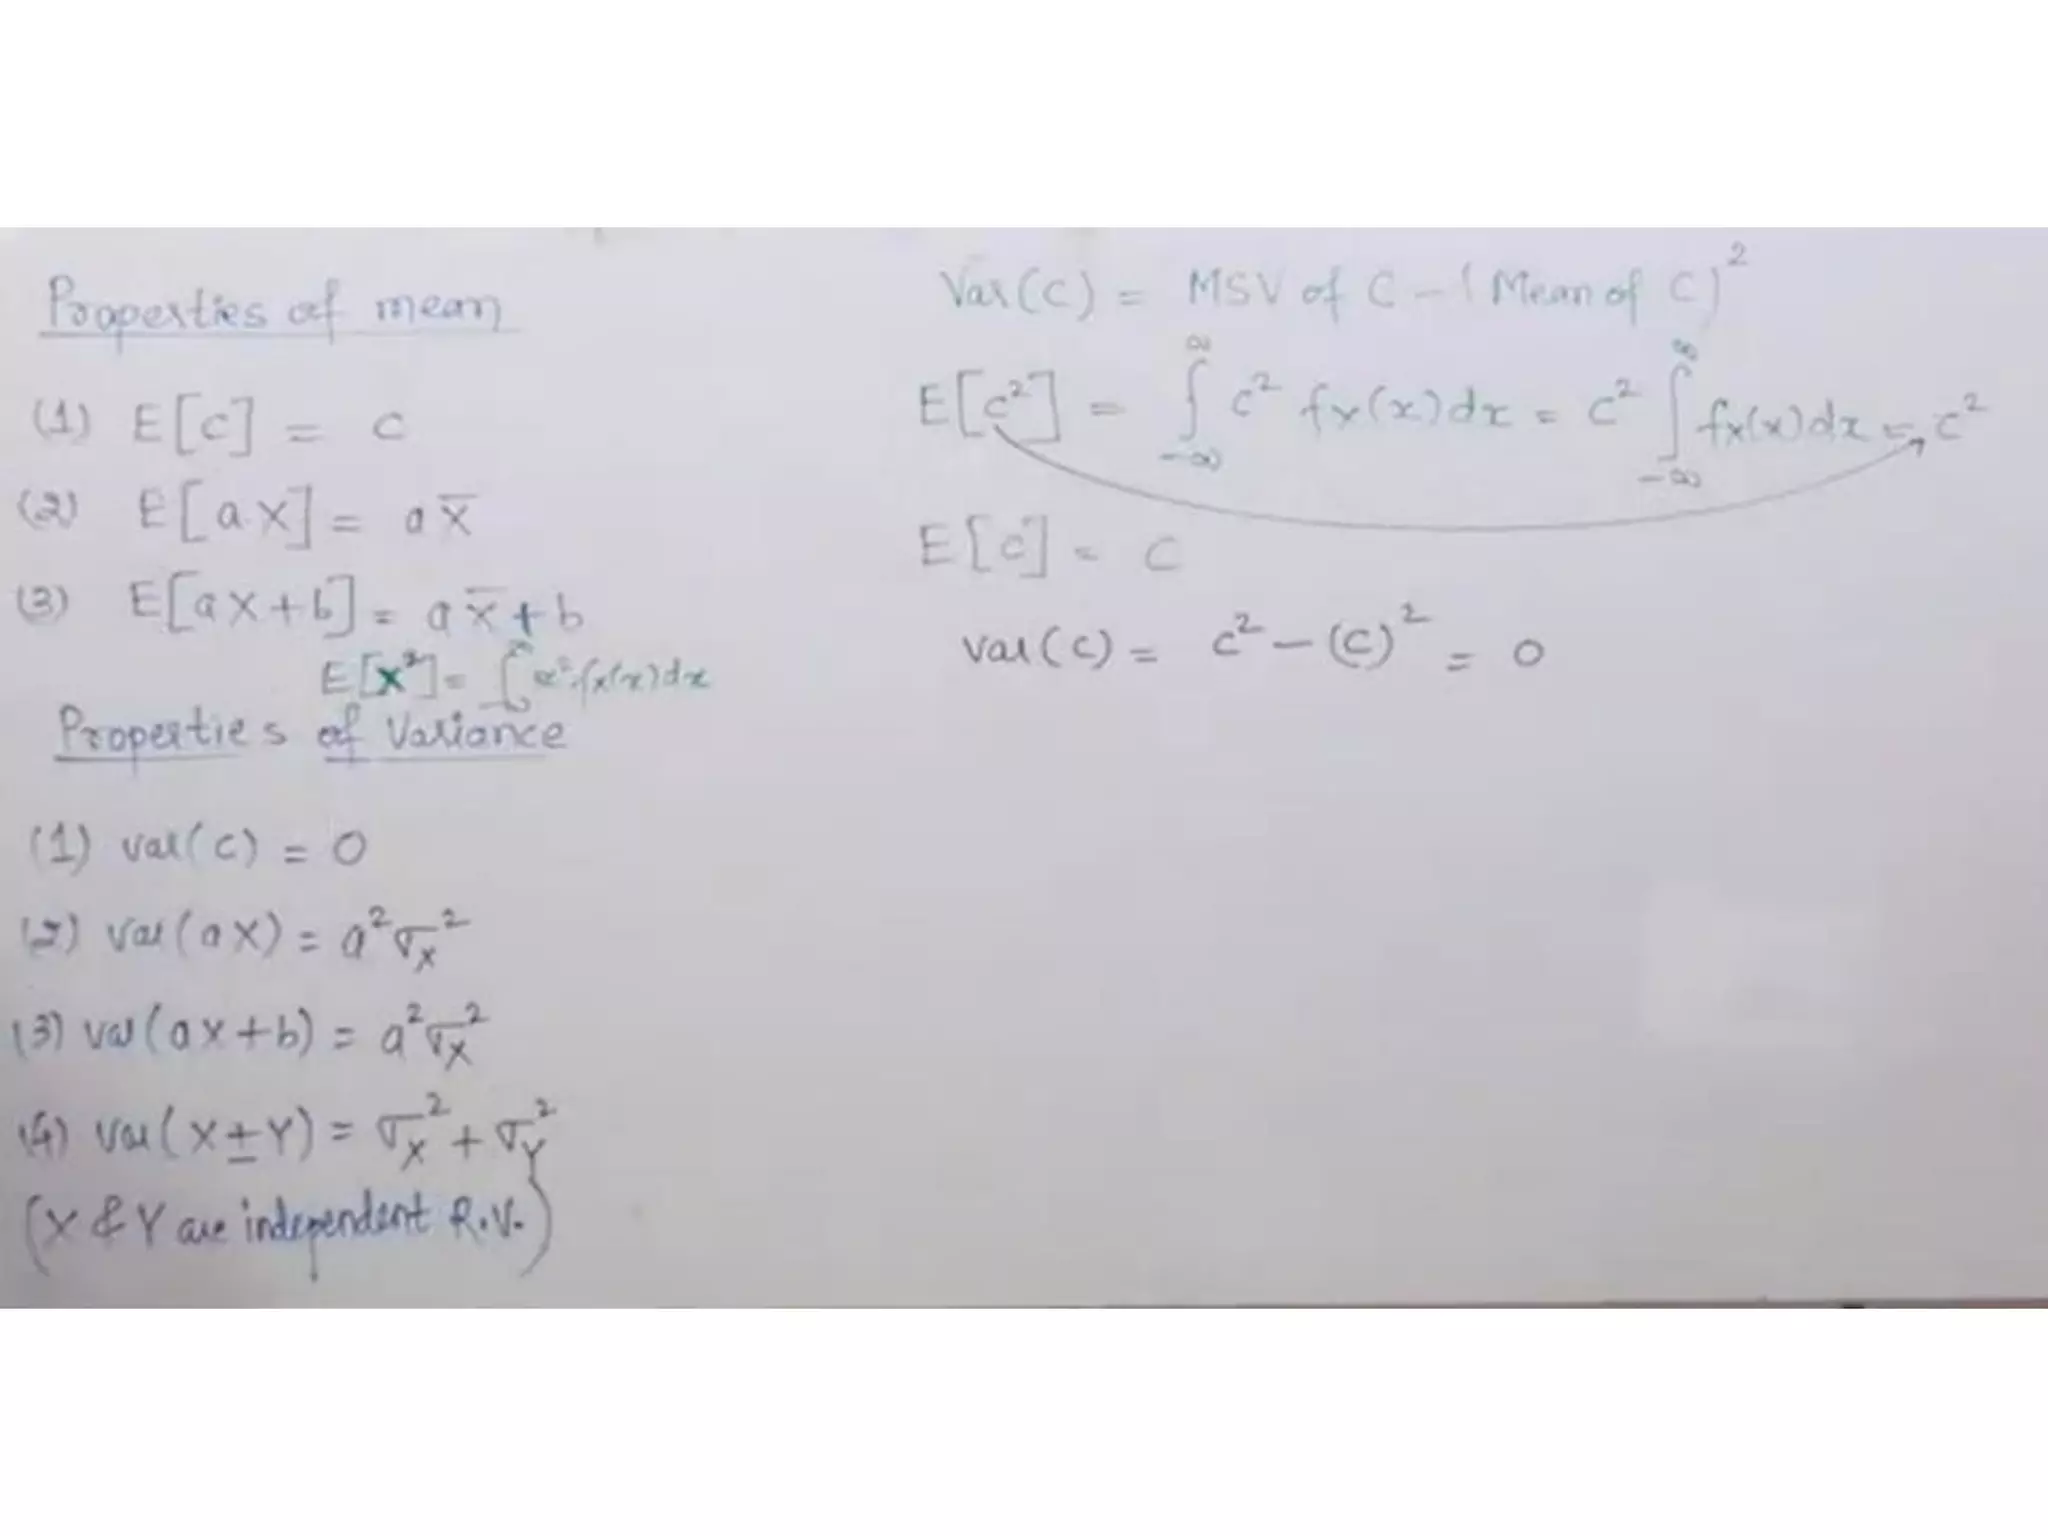 Properties of mean
(1) E[c] = c
(2) E[ax] = ax̅
(3) E[ax+b] = ax̅+b
E[x²] = ∫ x² fx(x)dx
Properties of Variance
(1) var(c) = 0
(2) var(ax) = a²σx²
(3) var(ax+b) = a²σx²
(4) var(X±Y) = σx² + σY²
(X & Y are independent R.V.)
Var(c) = MSV of C - (Mean of C)²
E[c²] = ∫_{-∞}^{∞} c² fx(x)dx = c² ∫_{-∞}^{∞} fx(x)dx = c²
E[c] = c
var(c) = c² - (c)² = 0